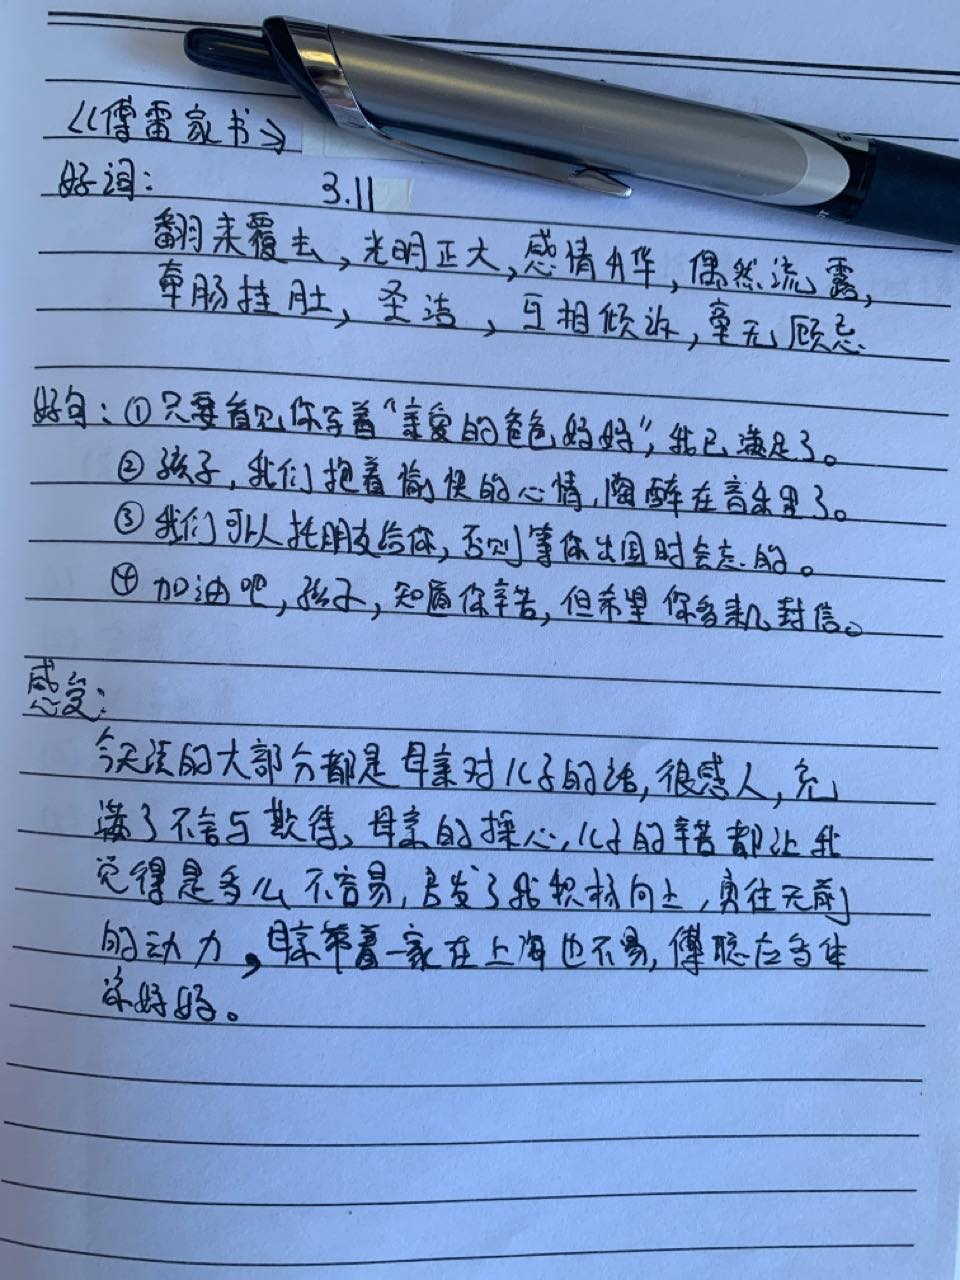 《傅雷家书》
好词: 3.11
翻来覆去,光明正大,感情升华,偶然流露,
牵肠挂肚,圣洁,互相倾诉,毫无顾忌
好句:①只要看见你写着“亲爱的爸爸妈妈”,我已满足了。
②孩子,我们抱着愉快的心情,陶醉在音乐里了。
③我们可以托朋友给你,否则等你出国时会忘的。
④加油吧,孩子,知道你辛苦,但希望你多来几封信。
感受:
今天读的大部分都是母亲对儿子的话,很感人,充
满了不舍与欺待、母亲的操心,儿子的辛苦都让我
觉得是多么不容易,启发了我积极向上,勇往无前
的动力,母亲带着一家在上海也不易,傅聪应当体
谅妈妈。